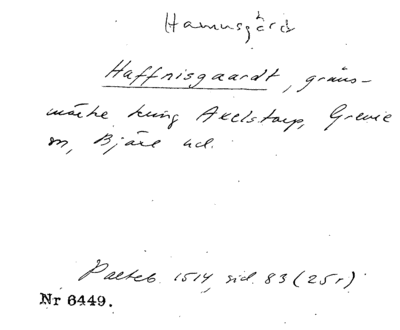 Hamnsgård
Haffnisgaardt, gräns-
märke kring Axelstorp, Grevie
sn, Bjäre hd.
Palteb. 1514, sid. 83 (25r)
Nr 6449.